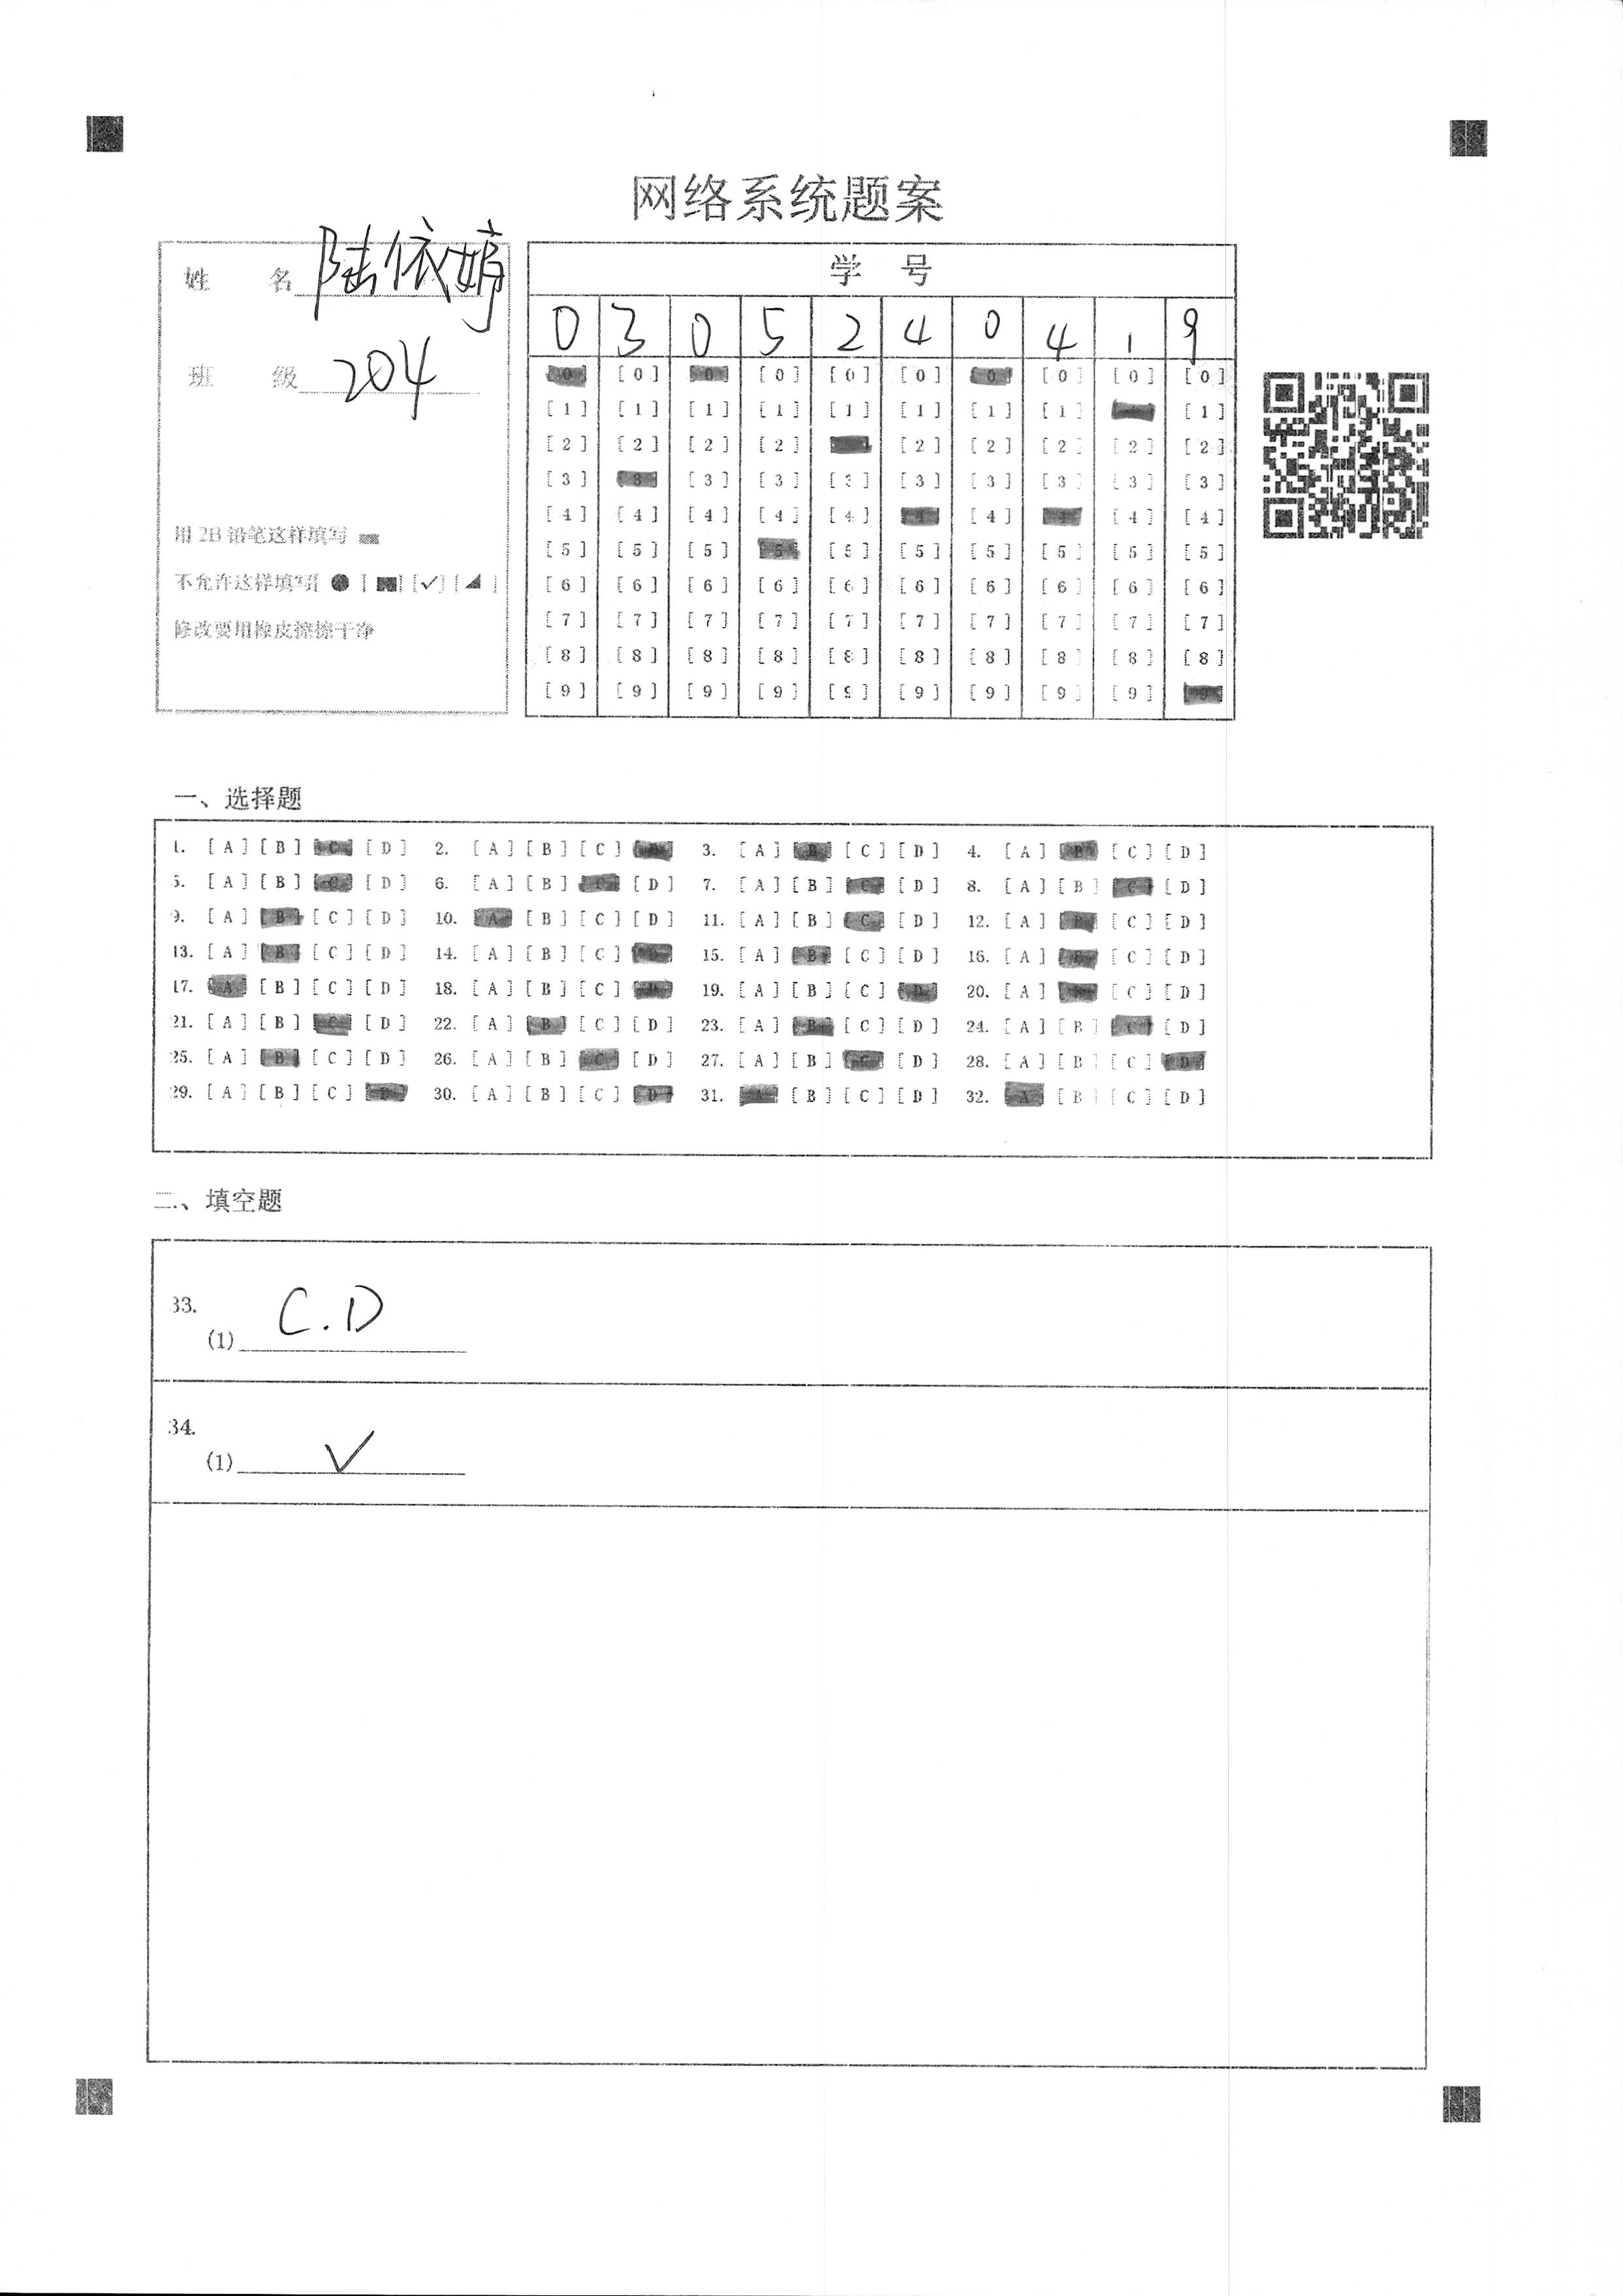 网络系统题案
姓 名 陆依婷
班 级 204
用 2B 铅笔这样填写
不允许这样填写[ ● ] [ ] [✓] [ ]
修改要用橡皮擦擦干净
学 号
0 3 0 5 2 4 0 4 1 9
[0] [0] [0] [0] [0] [0] [0] [0] [0] [0]
[1] [1] [1] [1] [1] [1] [1] [1] [1]
[2] [2] [2] [2] [2] [2] [2] [2] [2]
[3] [3] [3] [3] [3] [3] [3] [3] [3] [3]
[4] [4] [4] [4] [4] [4] [4] [4] [4]
[5] [5] [5] [5] [5] [5] [5] [5] [5] [5]
[6] [6] [6] [6] [6] [6] [6] [6] [6] [6]
[7] [7] [7] [7] [7] [7] [7] [7] [7] [7]
[8] [8] [8] [8] [8] [8] [8] [8] [8] [8]
[9] [9] [9] [9] [9] [9] [9] [9] [9] [9]
一、选择题
1. [A] [B] [C] [D] 2. [A] [B] [C] [D] 3. [A] [B] [C] [D] 4. [A] [B] [C] [D]
5. [A] [B] [C] [D] 6. [A] [B] [C] [D] 7. [A] [B] [C] [D] 8. [A] [B] [C] [D]
9. [A] [B] [C] [D] 10. [A] [B] [C] [D] 11. [A] [B] [C] [D] 12. [A] [B] [C] [D]
13. [A] [B] [C] [D] 14. [A] [B] [C] [D] 15. [A] [B] [C] [D] 16. [A] [B] [C] [D]
17. [A] [B] [C] [D] 18. [A] [B] [C] [D] 19. [A] [B] [C] [D] 20. [A] [B] [C] [D]
21. [A] [B] [C] [D] 22. [A] [B] [C] [D] 23. [A] [B] [C] [D] 24. [A] [B] [C] [D]
25. [A] [B] [C] [D] 26. [A] [B] [C] [D] 27. [A] [B] [C] [D] 28. [A] [B] [C] [D]
29. [A] [B] [C] [D] 30. [A] [B] [C] [D] 31. [A] [B] [C] [D] 32. [A] [B] [C] [D]
二、填空题
33.
(1) C.D
34.
(1) ✓